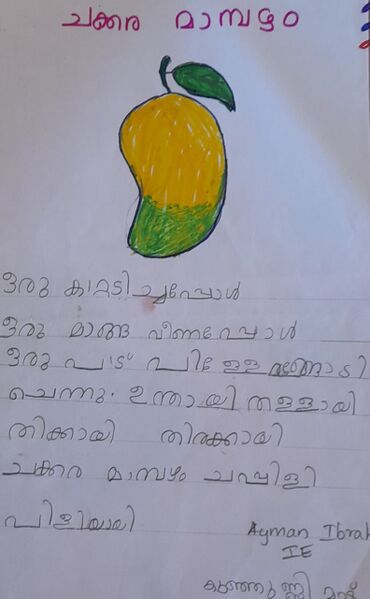 ചക്കര മാമ്പഴം
ഒരു കാറ്റടിച്ചപ്പോൾ
ഒരു മാങ്ങ വീണപ്പോൾ
ഒരു പാട് പിള്ളേ
ചെന്നു. ഉന്തായി തള്ളായി
തിക്കായി തിരക്കായി
ചക്കര മാമ്പഴം ചപ്പിളി
പിളിയായി
Ayman Ibrah
IE
കുഞ്ഞുണ്ണി മാഷ്